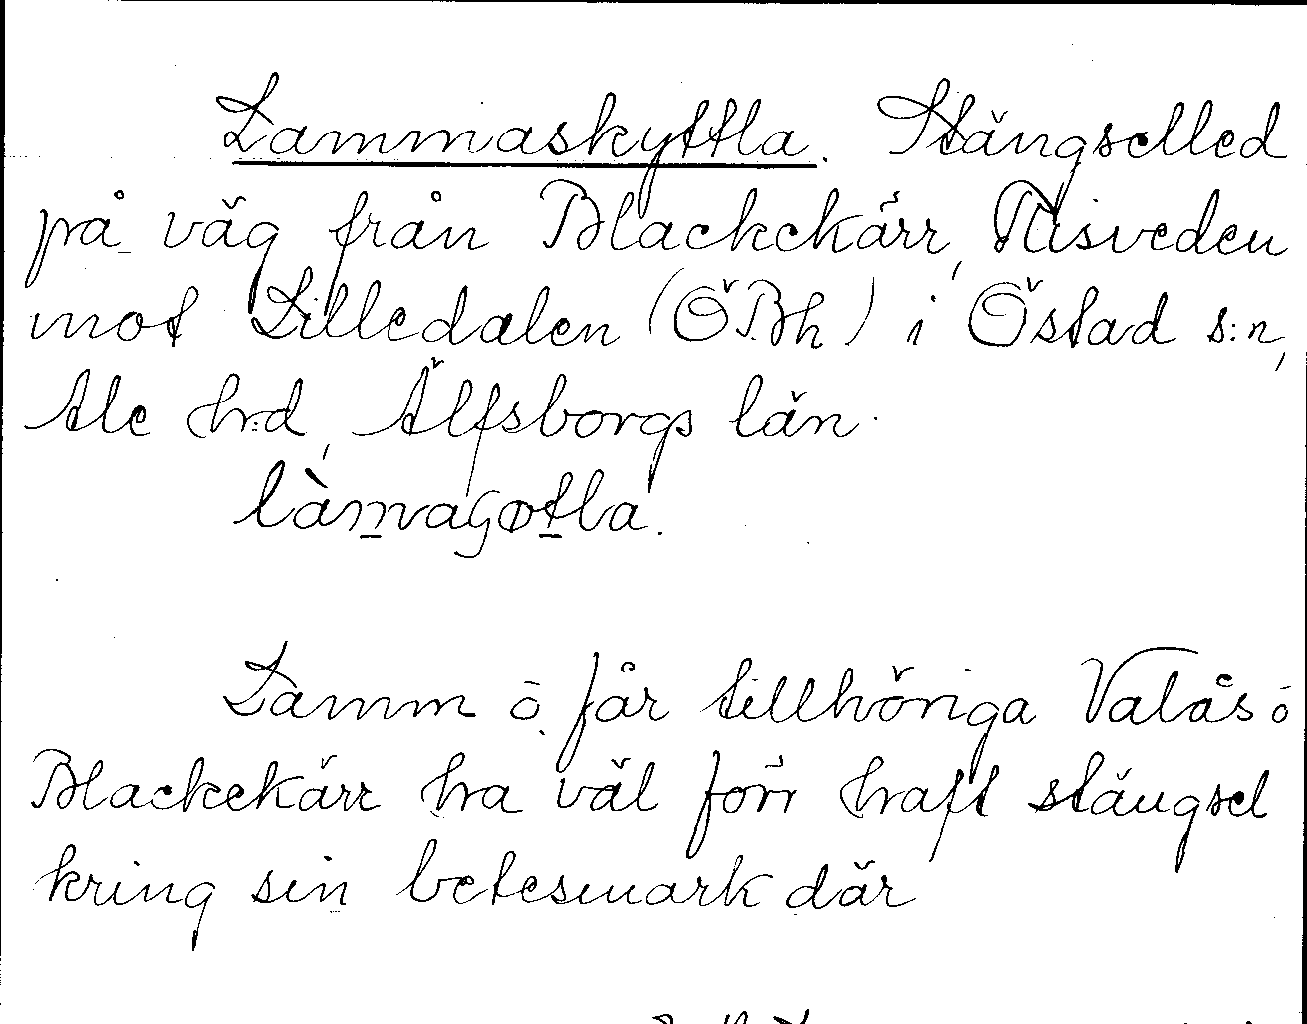 Lammaskyttla. Stängselled
på väg från Blackekärr, Risveden
mot Lilledalen (ÖBh) i Östad s:n,
Ale h:d, Älfsborgs län.
Lamm ō får tillhöriga Valås ō
Blackekärr ha väl förr haft stängsel
kring sin betesmark där